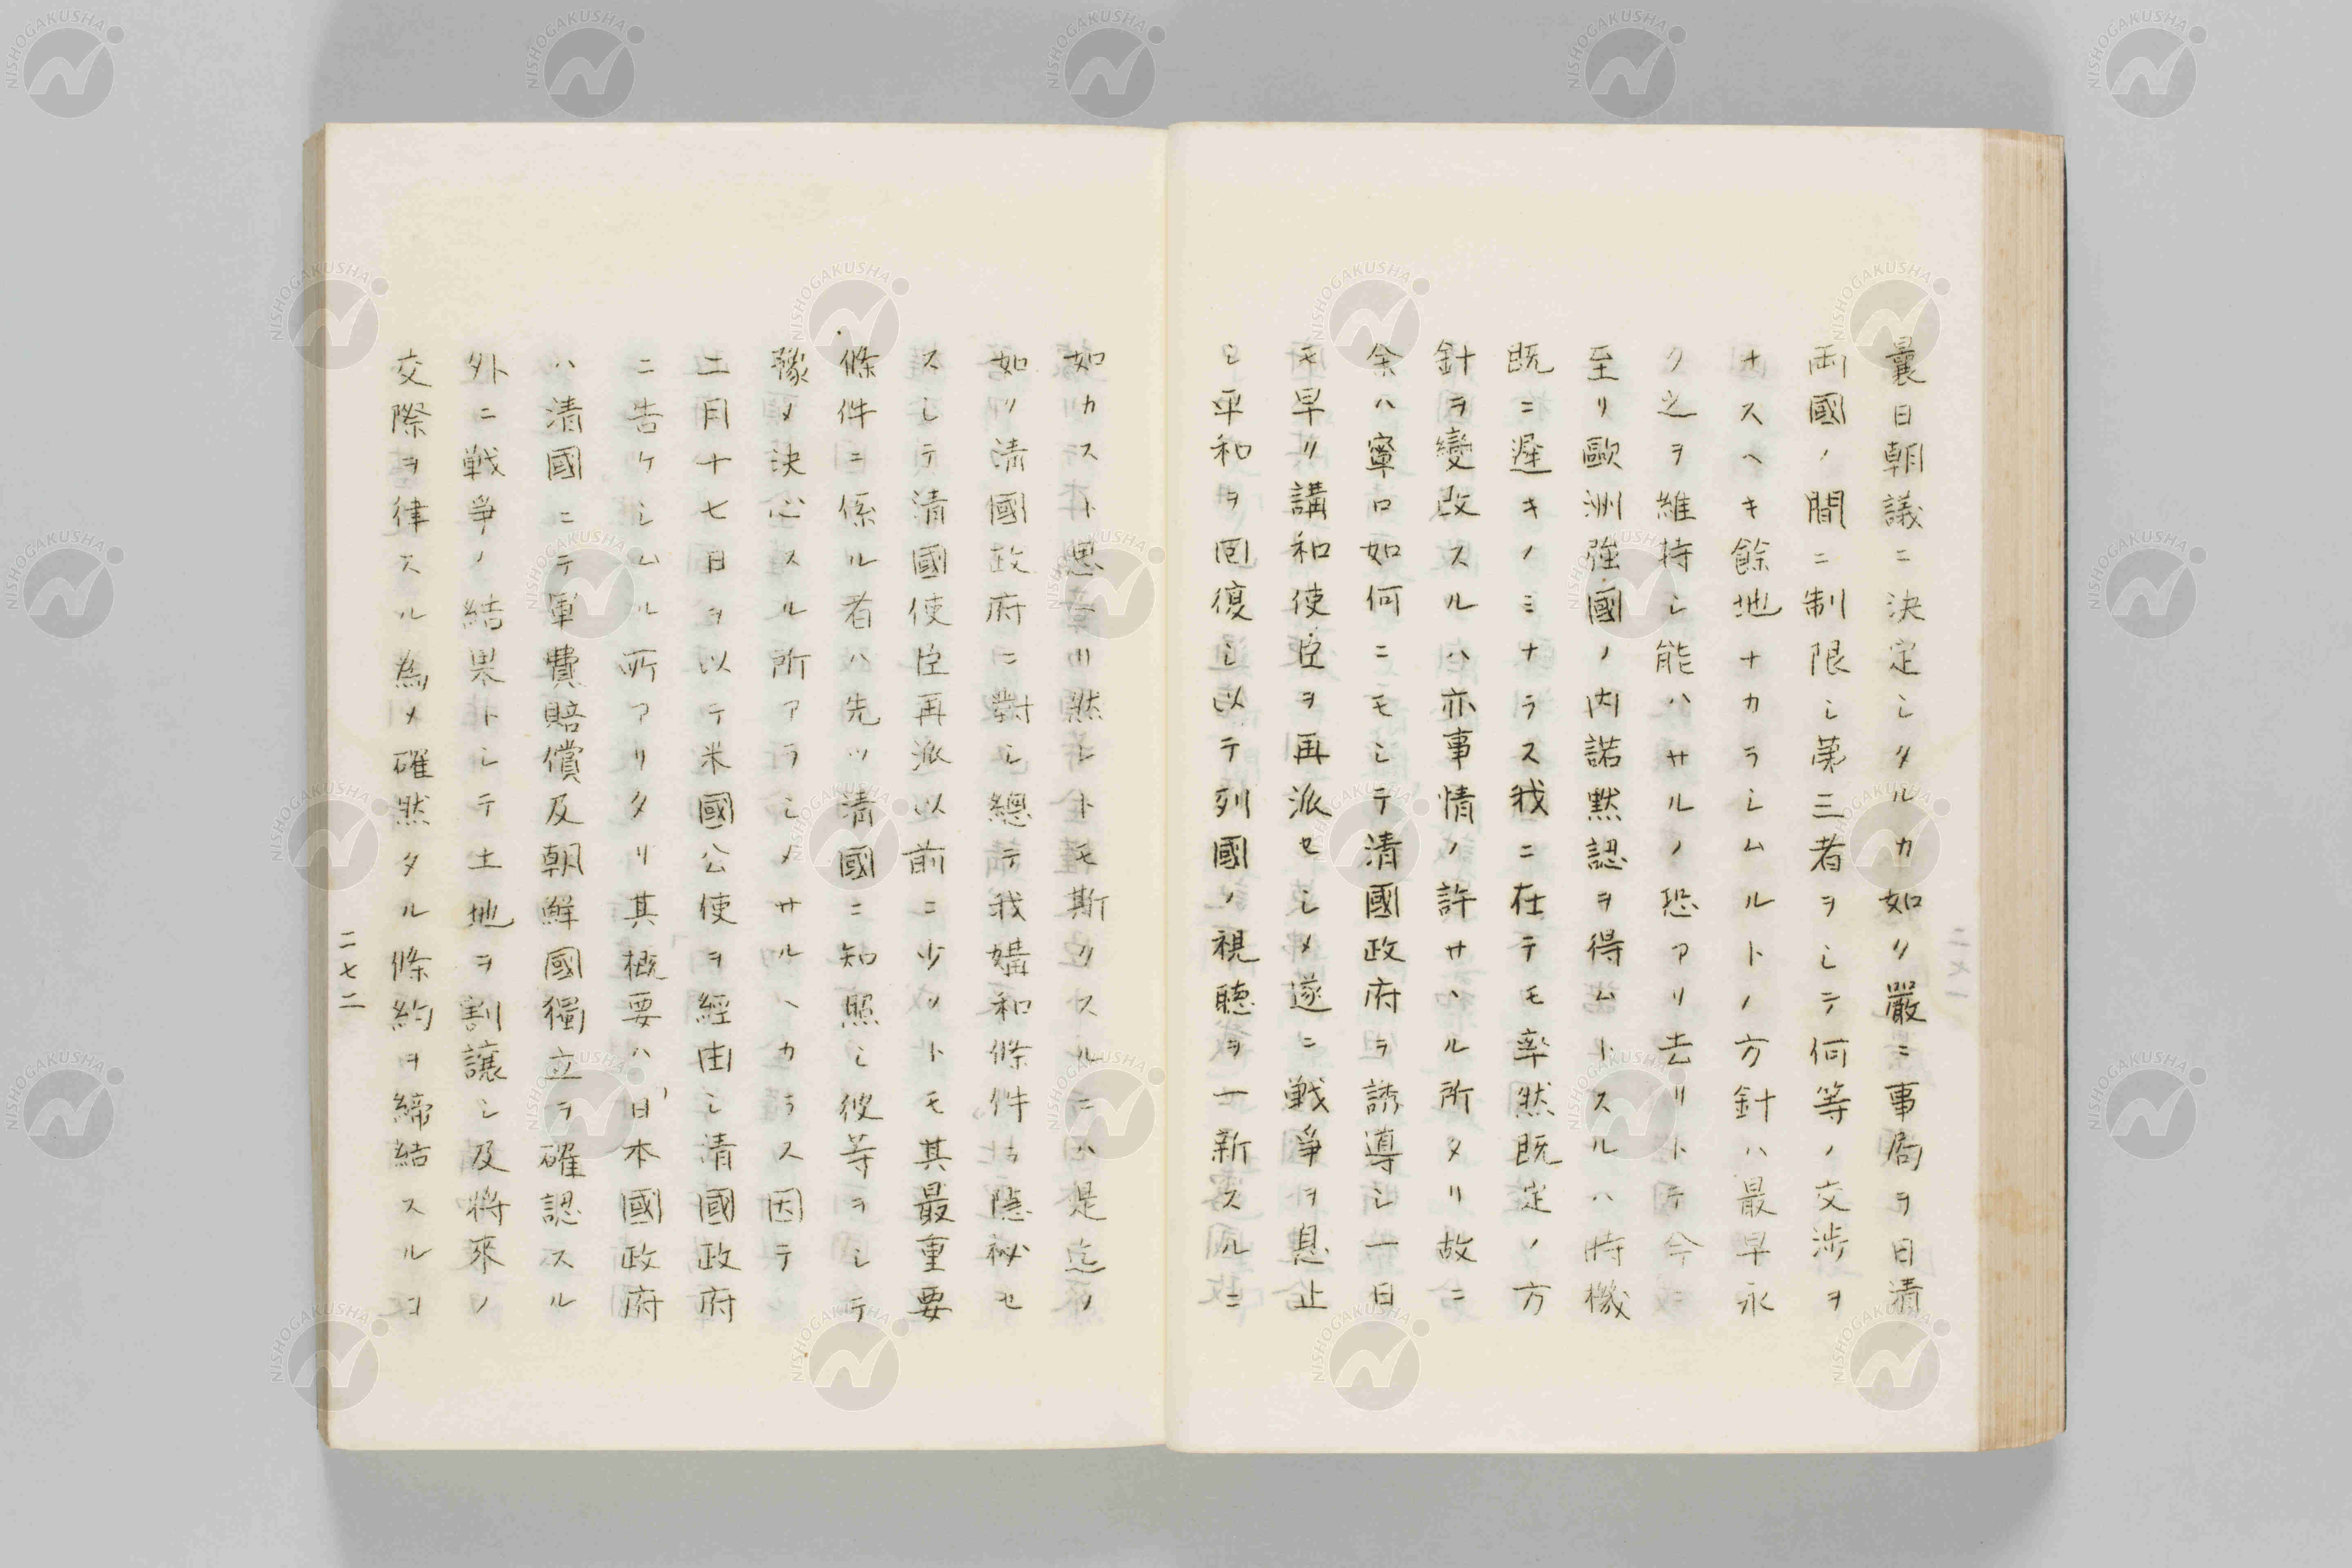 曩日朝議ニ決定シタルカ如ク嚴ニ事局ヲ日清
両國ノ間ニ制限シ第三者ヲシテ何等ノ交渉ヲ
ナスヘキ餘地ナカラシムルトノ方針ハ最早永
ク之ヲ維持シ能ハサルノ恐アリ去リトテ今ニ
至リ歐洲強國ノ内諾黙認ヲ得ムトスルハ時機
既ニ遲キノミナラス我ニ在テモ率然既定ノ方
針ヲ變改スルハ亦事情ノ許サヽル所タリ故ニ
余ハ寧ロ如何ニモシテ清國政府ヲ誘導シ一日
モ早ク講和使臣ヲ再派セシメ遂ニ戦爭ヲ息止
シ平和ヲ囘復シ以テ列國ノ視聽ヲ一新スルニ
如カスト思惟
ク然レトモ斯クスルニハ是迄ノ
如ク清國政府ニ對シ總テ我媾和條件ヲ隱祕セ
スシテ清國使臣再派以前ニ少クトモ其最重要
條件ニ係ル者ハ先ツ清國ニ知照シ彼等ヲシテ
豫メ決心スル所アラシメサルヘカラス因テ
二月十七日ヲ以テ米國公使ヲ經由シ清國政府
ニ告ケシムル所アリタリ其概要ハ「日本國政府
ハ清國ニテ軍費賠償及朝鮮國獨立ヲ確認スル
外ニ戦爭ノ結果トシテ土地ヲ割讓シ及將來ノ
交際ヲ律スル為メ確然タル條約ヲ締結スルコ
二七二
二七一
NISHOGAKUSHA